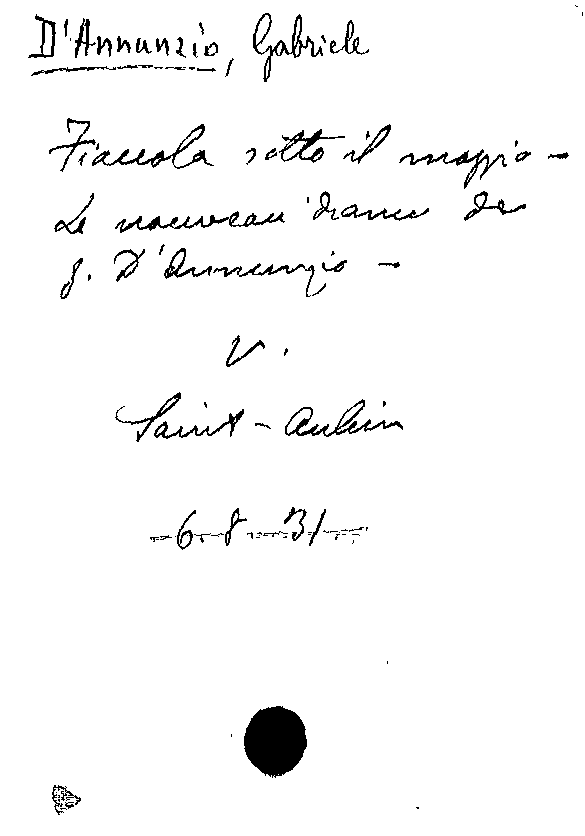 D'Annunzio, Gabriele
Fiaccola sotto il moggio -
Le nouveau drame de
G. D'Annunzio -
V.
Saint-Aubin
6.8 31